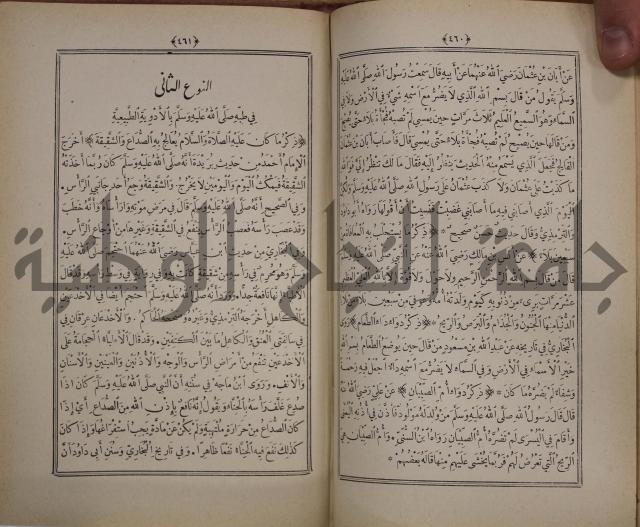 ﴿٤٦٠﴾
عن أبان بن عثمان رضي الله عنهما عن أبيه قال سمعت رسول الله صلى الله عليه
وسلم يقول من قال بسم الله الذي لا يضر مع اسمه شيء في الأرض ولا في
السماء وهو السميع العليم ثلاث مرات حين يمسي لم تصبه فجأة بلاء حتى يصبح
ومن قالها حين يصبح لم تصبه فجأة بلاء حتى يمسي قال فأصاب أبان بن عثمان
الفالج فجعل الذي يسمع منه الحديث ينظر إليه فقال ما لك تنظر إلي فوالله
ما كذبت على عثمان ولا كذب عثمان على رسول الله صلى الله عليه وسلم ولكن
اليوم الذي أصابني فيه ما أصابني غضبت فنسيت أن أقولها رواه أبو داود
والترمذي وقال حديث حسن صحيح
عن أنس بن مالك رضي الله عنه
قال من قال بسم الله الرحمن الرحيم ولا حول ولا قوة إلا بالله العلي العظيم
عشر مرات برئ من ذنوبه كيوم ولدته أمه وعوفي من سبعين بلاء من
الدنيا منها الجنون والجذام والبرص والريح ﴿ذكر دواء داء الطعام﴾ روى
البخاري في تاريخه عن عبد الله بن مسعود من قال حين يوضع الطعام بسم الله
خير الأسماء في الأرض وفي السماء لا يضر مع اسمه داء اجعل فيه رحمة
وشفاء لم يضره ما كان ﴿ذكر دواء أم الصبيان﴾ عن علي رضي الله عنه
قال قال رسول الله صلى الله عليه وسلم من ولد له مولود فأذن في أذنه اليمنى
وأقام في اليسرى لم تضره أم الصبيان رواه ابن السني وأم الصبيان هي
الريح التي تعرض لهم فربما يخشى عليهم منها قاله بعضهم *
﴿٤٦١﴾
النوع الثاني
في طبه صلى الله عليه وسلم بالأدوية الطبيعية
﴿ذكر ما كان عليه الصلاة والسلام يعالج به الصداع والشقيقة﴾ أخرج
الإمام أحمد من حديث بريدة أنه صلى الله عليه وسلم كان ربما أخذته
الشقيقة فيمكث اليوم واليومين لا يخرج . والشقيقة وجع أحد جانبي الرأس .
وفي الصحيح أنه صلى الله عليه وسلم قال في مرض موته وارأساه وأنه خطب
وقد عصب رأسه فعصب الرأس ينفع في الشقيقة وغيرها من أوجاع الرأس .
وفي البخاري من حديث ابن عباس رضي الله عنهما احتجم صلى الله عليه
وسلم وهو محرم في رأسه من شقيقة كانت به وفي رواية في وسط رأسه وقد قال
الأطباء إنها نافعة جدا وورد أنه صلى الله عليه وسلم احتجم أيضا في الأخدعين
والكاهل أخرجه الترمذي وغيره وصححه الحاكم . والأخدعان عرقان في
سالفتي العنق والكاهل ما بين الكتفين . وقد قال الأطباء الحجامة على
الأخدعين تنفع من أمراض الرأس والوجه والأذنين والعينين والأسنان
والأنف . وروى ابن ماجه في سننه أن النبي صلى الله عليه وسلم كان إذا
صدع غلف رأسه بالحناء ويقول إنه نافع بإذن الله من الصداع . أي إذا
كان الصداع من حرارة ملتهبة ولم يكن عن مادة يجب استفراغها وإذا كان
كذلك نفع فيه الحناء نفعا ظاهرا . وفي تاريخ البخاري وسنن أبي داود أن
جامعة النجاح الوطنية